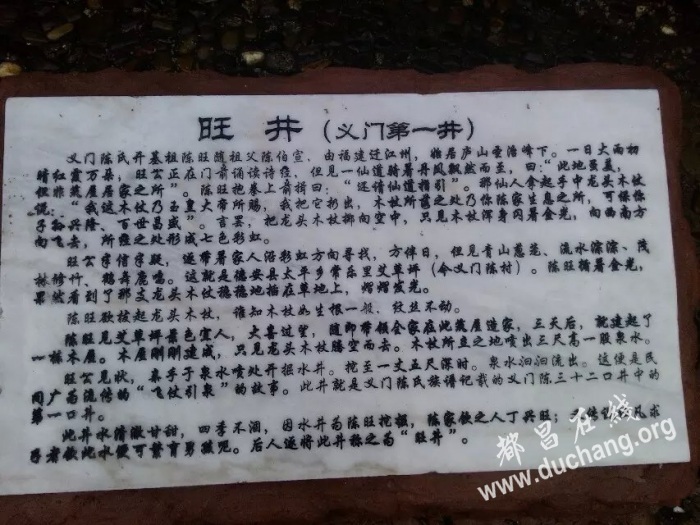 旺 井（义门第一井）
义门陈氏开基祖陈旺随祖父陈伯宣，由福建迁江州，居庐山圣治峰下。一日大雨初
晴红霞万朵，旺公正在门前诵读诗经，但见一仙道骑着丹凤飘然而至，曰：“此地虽美，
但非筑屋居家之所”。陈旺抱拳上前揖曰：“还请仙道指引”。那仙人拿起手中龙头木杖
说：“我这木杖乃玉皇大帝所赐，我把它抛出，木杖所落之处乃你陈家生息之所，可保你
子孙兴隆、百世昌盛”。言罢，把龙头木杖掷向空中，只见木杖浑身闪着金光，向西南方
向飞去，所经之处形成七色彩虹。
旺公半信半疑，遂带着家人沿彩虹方向寻找，方伴日，但见青山葱茏、流水淙淙、茂
林修竹、鹤舞鹿鸣。这就是德安县太平乡常乐里艾草坪（今义门陈村）。陈旺循着金光，
果然看到了那支龙头木杖稳稳地插在草地上，熠熠发光。
陈旺欲拔起龙头木杖，谁知木杖如生根一般，纹丝不动。
陈旺见艾草坪景色宜人，大喜过望，随即带领全家在此筑屋造家，三天后，就建起了
一栋木屋。木屋刚刚建成，只见龙头木杖腾空而去。木杖所直之地喷出三尺高一股泉水。
旺公见状，亲手于泉水喷处开掘水井。挖至一丈五尺深时。泉水汩汩流出。这便是民
间广为流传的“飞杖引泉”的故事。此井就是义门陈氏族谱记载的义门陈三十二口井中的
第一口井。
此井水清澈甘甜，四季不涸，因水井为陈旺挖掘，陈家饮之人丁兴旺；凡求
子者饮此水便可繁育男孩儿。后人遂将此井称之为“旺井”。
都昌在线
www.duchang.org